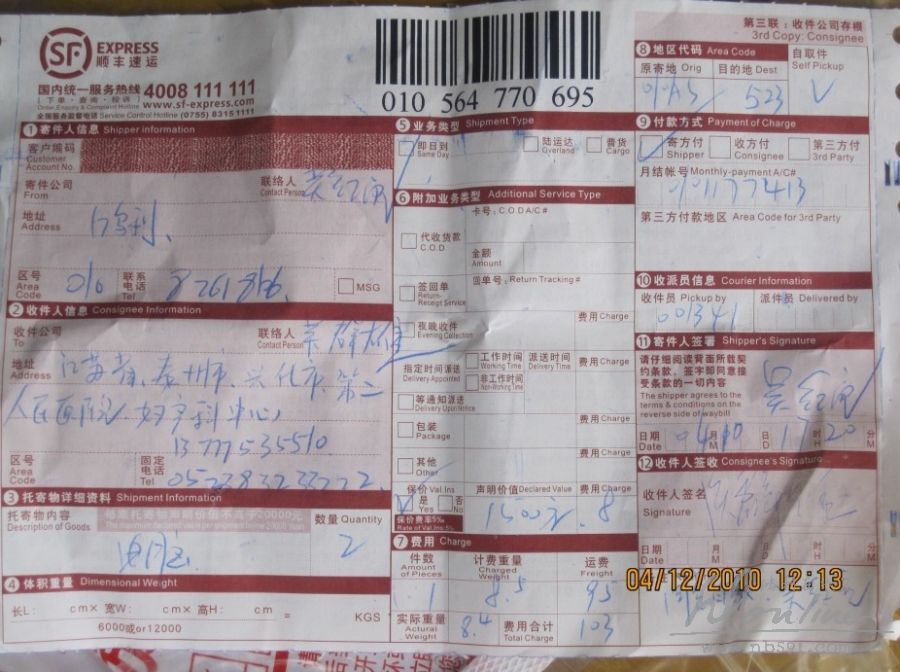 SF EXPRESS
顺丰速运
国内统一服务热线 4008 111 111
(下单·查询·投诉) www.sf-express.com
Order, Enquiry & Complaint Hotline
全国服务监督电话 Service Control Hotline (0755) 83151111
010 564 770 695
第三联:收件公司存根
3rd Copy: Consignee
1 寄件人信息 Shipper information
客户编码
Customer
Account No.
寄件公司
From
联络人
Contact Person
地址
Address
区号
Area
Code
010
联系
电话
Tel
MSG
2 收件人信息 Consignee Information
收件公司
To
联络人
Contact Person
地址
Address
江苏省、泰州市、兴化市、第二
人民医院 妇产科中心
13777535510
区号
Area
Code
固定
电话
Tel
3 托寄物详细资料 Shipment Information
托寄物内容
Description of Goods
数量 Quantity
2
4 体积重量 Dimensional Weight
长L: cm× 宽W: cm× 高H: cm
6000或or12000
= KGS
5 业务类型 Shipment Type
即日到
Same Day
陆运达
Overland
普货
Cargo
6 附加业务类型 Additional Service Type
代收货款
C.O.D
卡号:C.O.D A/C#
金额
Amount
签回单
Return-
Receipt Service
回单号:Return Tracking#
夜晚收件
Evening Collection
费用 Charge
指定时间派送
Delivery Appointed
工作时间
Working Time
非工作时间
Non-Working Time
派送时间
Delivery Time
费用 Charge
等通知派送
Delivery Upon Notice
包装
Package
费用 Charge
其他
Other
费用 Charge
保价 Val.Ins
是
Yes
否
No
保价费率5‰
Rate of Val.Ins:5‰
声明价值 Declared Value
1500元
费用 Charge
8
7 费用 Charge
件数
Amount
of Pieces
1
计费重量
Charged
Weight
8.5
运费
Freight
95
实际重量
Actual
Weight
8.4
费用合计
Total Charge
103
8 地区代码 Area Code
原寄地 Orig
目的地 Dest
523
自取件
Self Pickup
9 付款方式 Payment of Charge
寄方付
Shipper
收方付
Consignee
第三方付
3rd Party
月结帐号 Monthly-payment A/C#
第三方付款地区 Area Code for 3rd Party
10 收派员信息 Courier Information
收件员 Pickup by
001341
派件员 Delivered by
11 寄件人签署 Shipper's Signature
请仔细阅读背面所载契
约条款,签字即同意接
受条款的一切内容
The shipper agrees to the
terms & conditions on the
reverse side of waybill
日期
Date
月
M
日
D
时
H
分
M
12 收件人签收 Consignee's Signature
收件人签名
Signature
日期
Date
月
M
日
D
时
H
分
M
04/12/2010 12:13